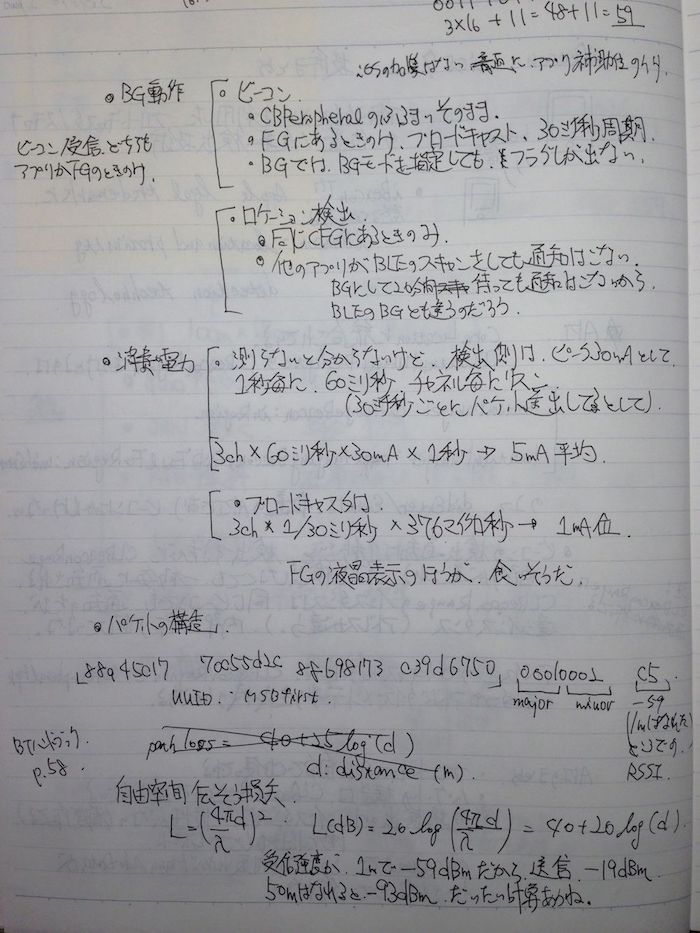 3×16 + 11 = 48+11 = 59
• BG動作
ビーコン/受信どちらも
アプリがFGのときのみ.
• ビーコン.
• CBPeripheralのふるまいそのまま.
• FGにあるときのみ、ブロードキャスト. 30ミリ秒周期.
• BGでは、BGモードを指定しても、フラグしか出ない.
• ロケーション検出.
• 同じくFGにあるときのみ.
• 他のアプリがBLEのスキャンをしても通知はこない.
BGにして20分待っても通知はこないから.
BLEのBGとも違うのだろう.
• 消費電力
• 測らないと分からないけど、検出側は、ピーク30mAとして.
1秒毎に 60ミリ秒、チャネル毎に
(30ミリ秒ごとにパケット送出してるとして).
3ch × 60ミリ秒 × 30mA × 1秒 → 5mA 平均.
• ブロードキャスタは
3ch * 1/30ミリ秒 × 376マイクロ秒 → 1mA位.
FGの液晶表示のほうが、食いそうだ.
• パケットの構造
88945017 70c55d2c 88698173 c39d6750 00010001 C5
UUID : MSB first. major minor -59
1mはなれた
ところでの
RSSI.
BTハンドブック.
p.58
path loss = 40+25 log (d)
d: distance (m)
自由空間伝そう損失.
L=(4πd/λ)² L(dB) = 20 log (4πd/λ) = 40+20 log(d).
受信強度が、1mで -59dBm だから、送信 -19dBm.
50mはなれると -93dBm. だいたい計算あうね.